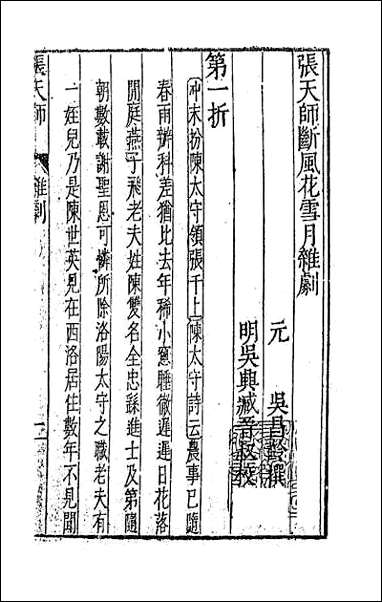 張天師斷風花雪月雜劇
元　吳昌齡撰
明吳興臧晉叔校
第一折
沖末扮陳太守領張千上陳太守詩云農事已隨
春雨辦科差猶比去年稀小窻睡徹遲遲日花落
閒庭燕子飛老夫姓陳雙名全忠繇進士及第隨
朝數載謝聖恩可憐所除洛陽太守之職老夫有
一姪兒乃是陳世英見在西洛居住數年不見聞
張天師　雜劇　一